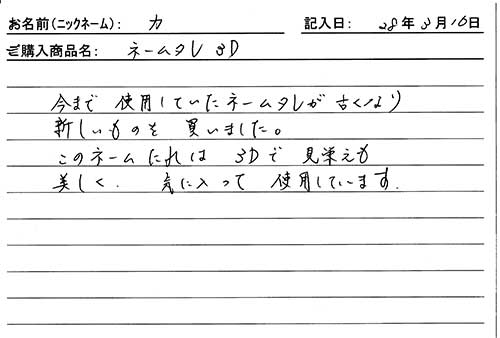 お名前(ニックネーム): カ 記入日: 28年3月16日
ご購入商品名: ネームタレ 3D
今まで 使用していたネームタレが 古くなり
新しいものを 買いました。
このネームたれは 3Dで 見栄えも
美しく、気に入って 使用しています.